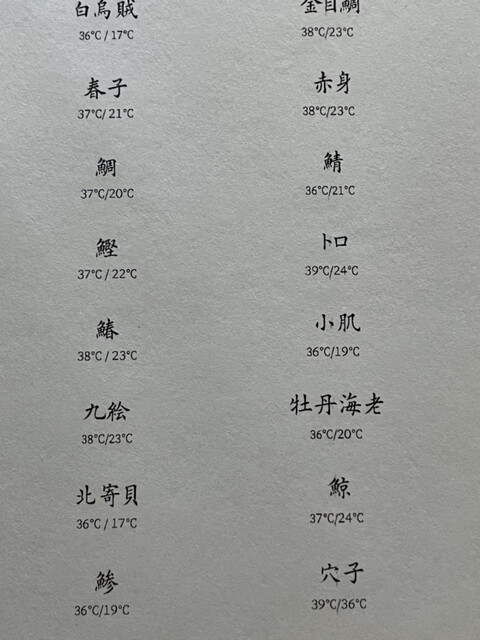 白烏賊
36°C / 17°C
春子
37°C/ 21°C
鯛
37°C/20°C
鰹
37°C / 22°C
鰆
38°C / 23°C
九絵
38°C/23°C
北寄貝
36°C / 17°C
鯵
36°C/19°C
金目鯛
38°C/23°C
赤身
38°C/23°C
鯖
36°C/21°C
トロ
39°C/24°C
小肌
36°C/19°C
牡丹海老
36°C/20°C
鯨
37°C/24°C
穴子
39°C/36°C